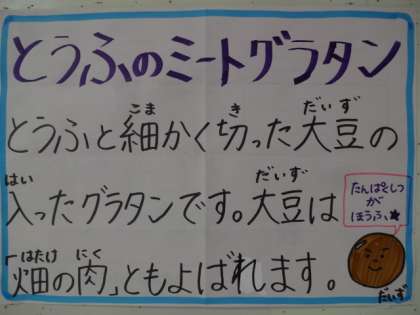 とうふのミートグラタン
とうふと細かく切った大豆の
入ったグラタンです。大豆は
「畑の肉」ともよばれます。
こま
き
だいず
はい
だいず
はたけ
にく
たんぱくしつ
が
ほうふ★
だいず